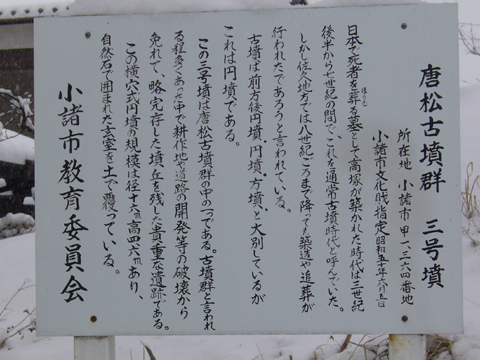 唐松古墳群 三号墳
所在地 小諸市甲一、三六四番地
小諸市文化財指定 昭和五十年六月五日
日本で死者を葬る墓として高塚が築かれた時代は三世紀
ほうむ
後半から七世紀の間で、これを通常古墳時代と呼んでいた。
しかし佐久地方では八世紀ごろまで降っても築造や追葬が
行われたであろうと言われている。
古墳は前方後円墳、円墳、方墳、と大別しているが
これは円墳である。
この三号墳は唐松古墳群の中の一つである。古墳群と言われ
る程多くあった中で耕作地、道路の開発等の破壊から
免れて、略完存した墳丘を残した貴重な遺跡である。
この横穴式円墳の規模は径十三m高四.六mあり、
自然石で囲まれた玄室を土で覆っている。
小諸市教育委員会